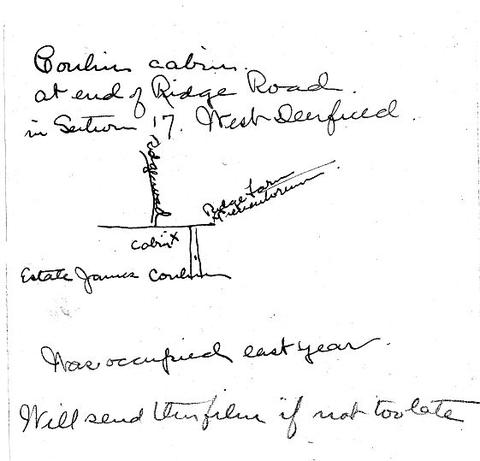 Conlin cabin.
at end of Ridge Road.
in Section 17. West Deerfield.
Ridge Road
Ridge Farm
Preventorium
Cabin x
Estate James Conlin
Was occupied last year.
Will send this film if not too late